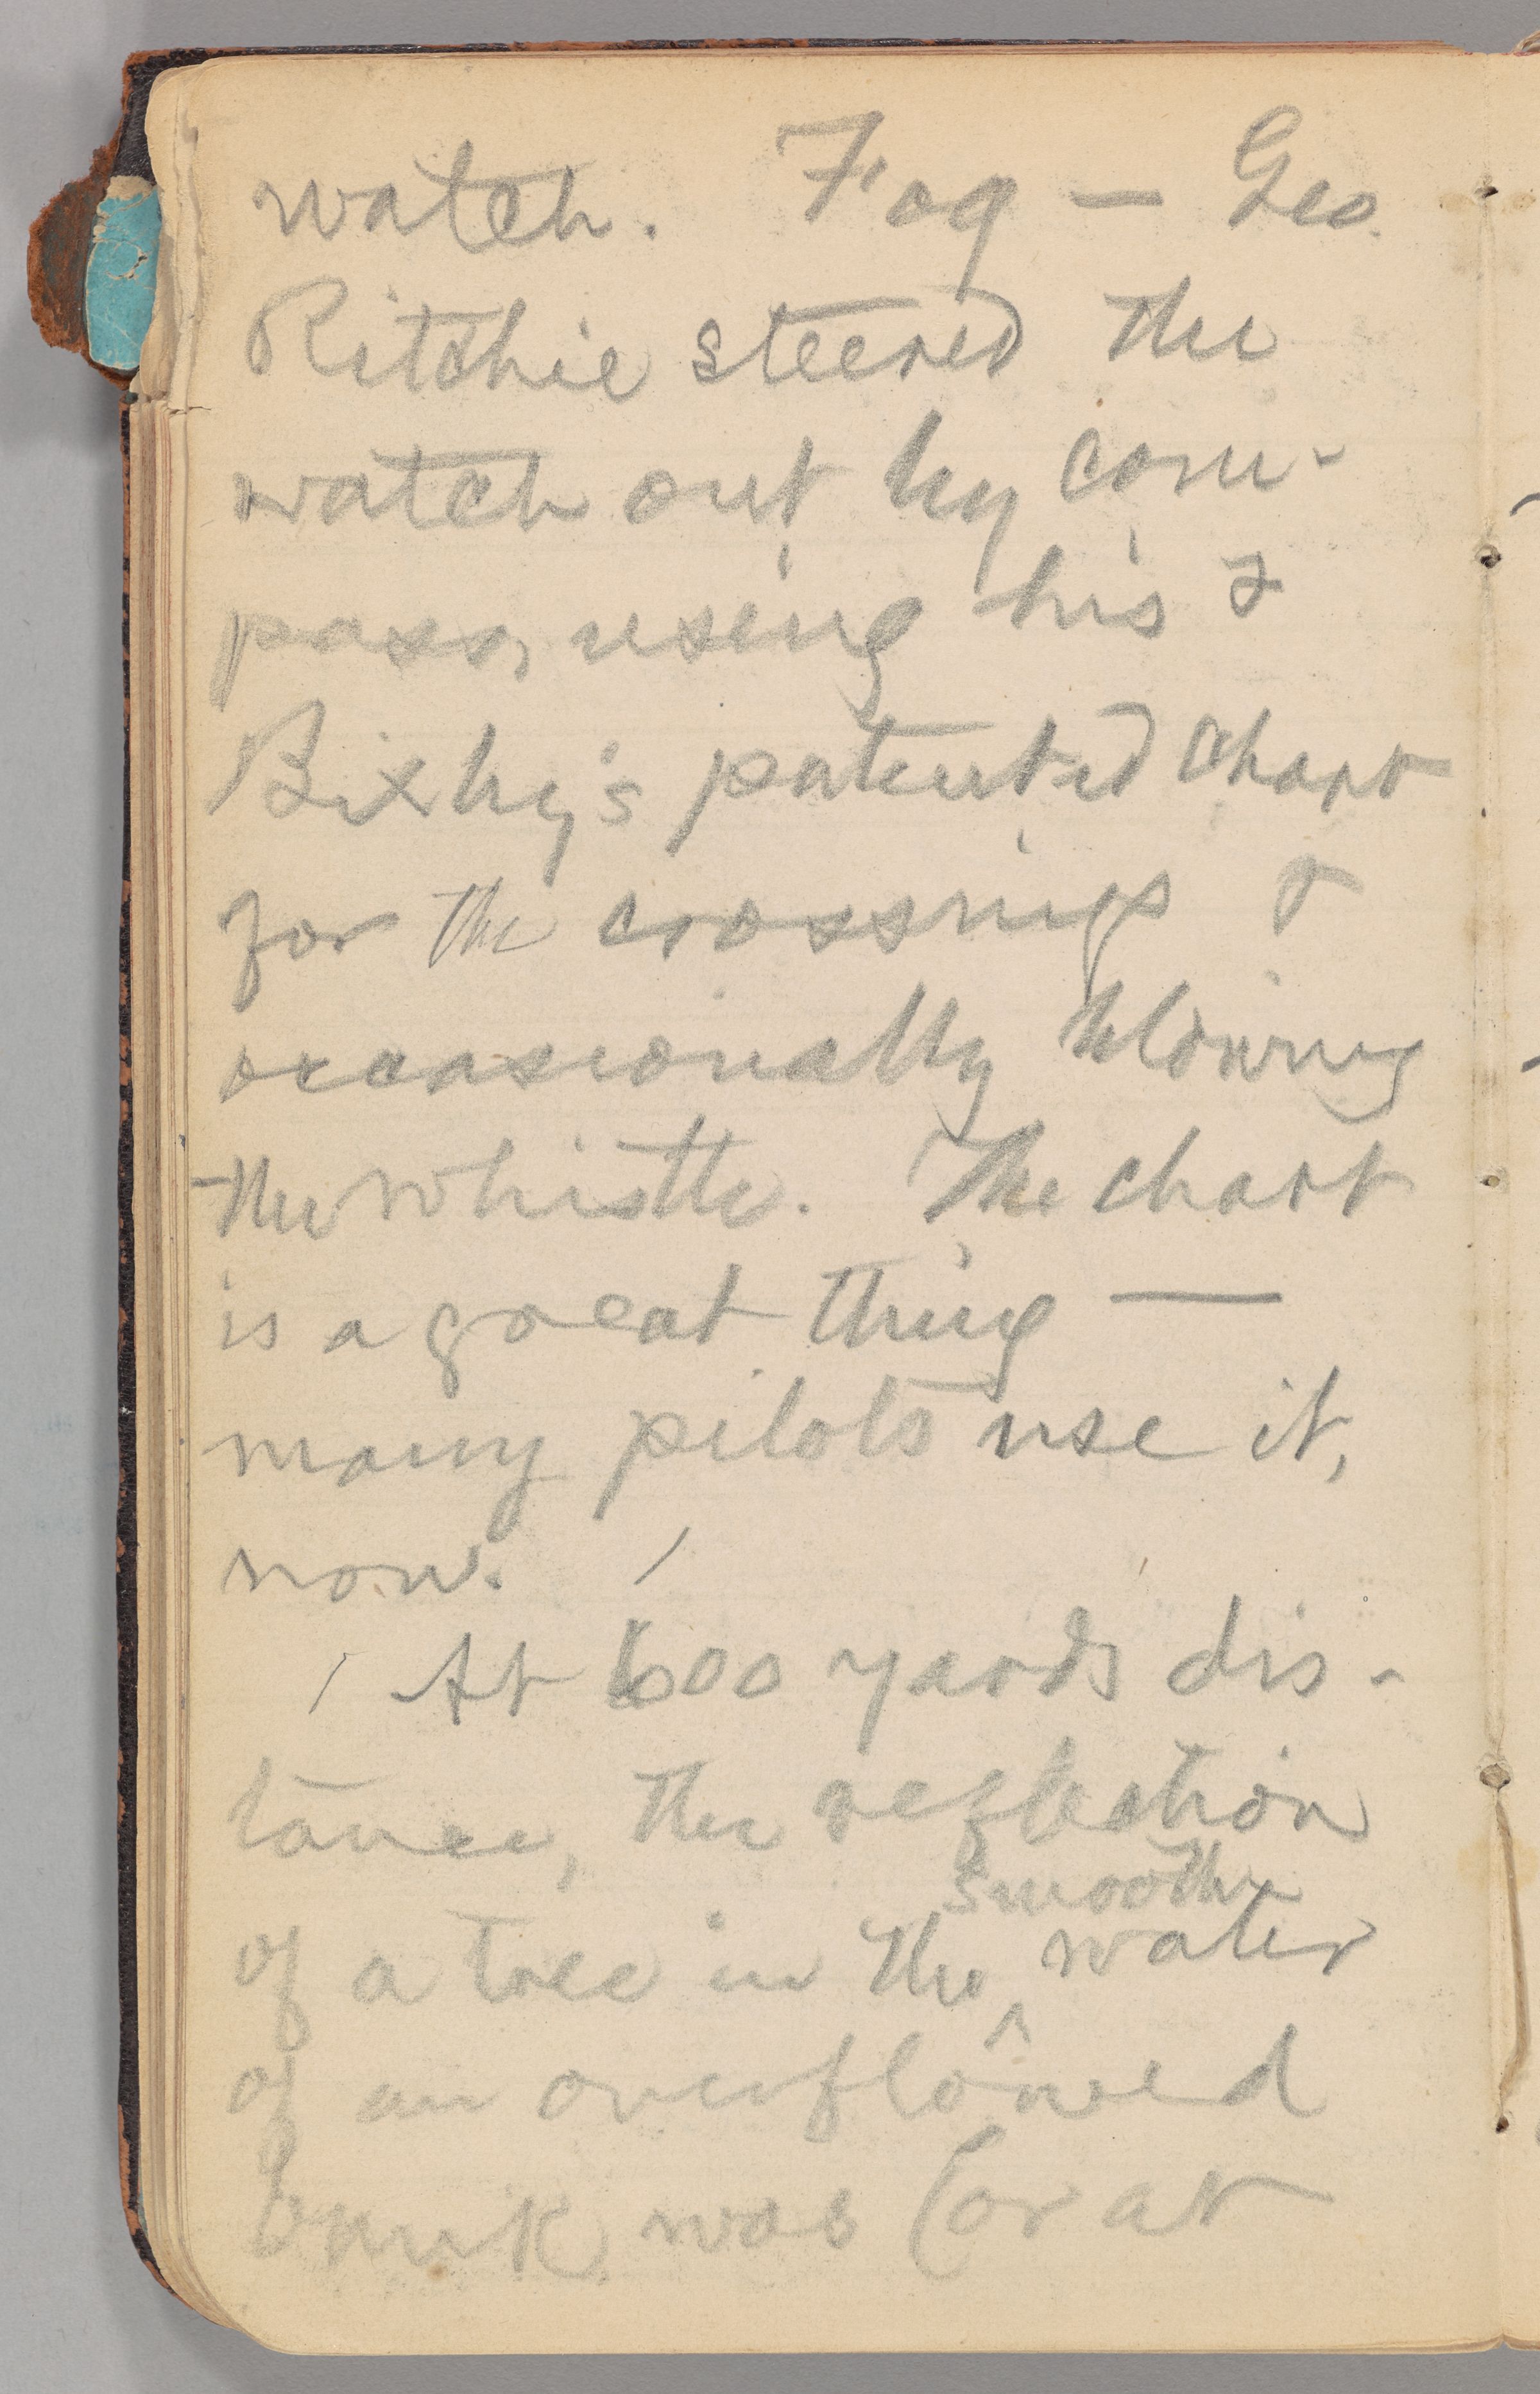 watch. Fog — Geo.
Ritchie steered the
watch out by com-
pass, using his &
Bixby's patented chart
for the crossings &
occasionally blowing
the whistle. The chart
is a great thing —
many pilots use it,
now.
At 600 yards dis-
tance, the reflection
smooth
of a tree in the ^ water
of an overflowed
bank was (or at